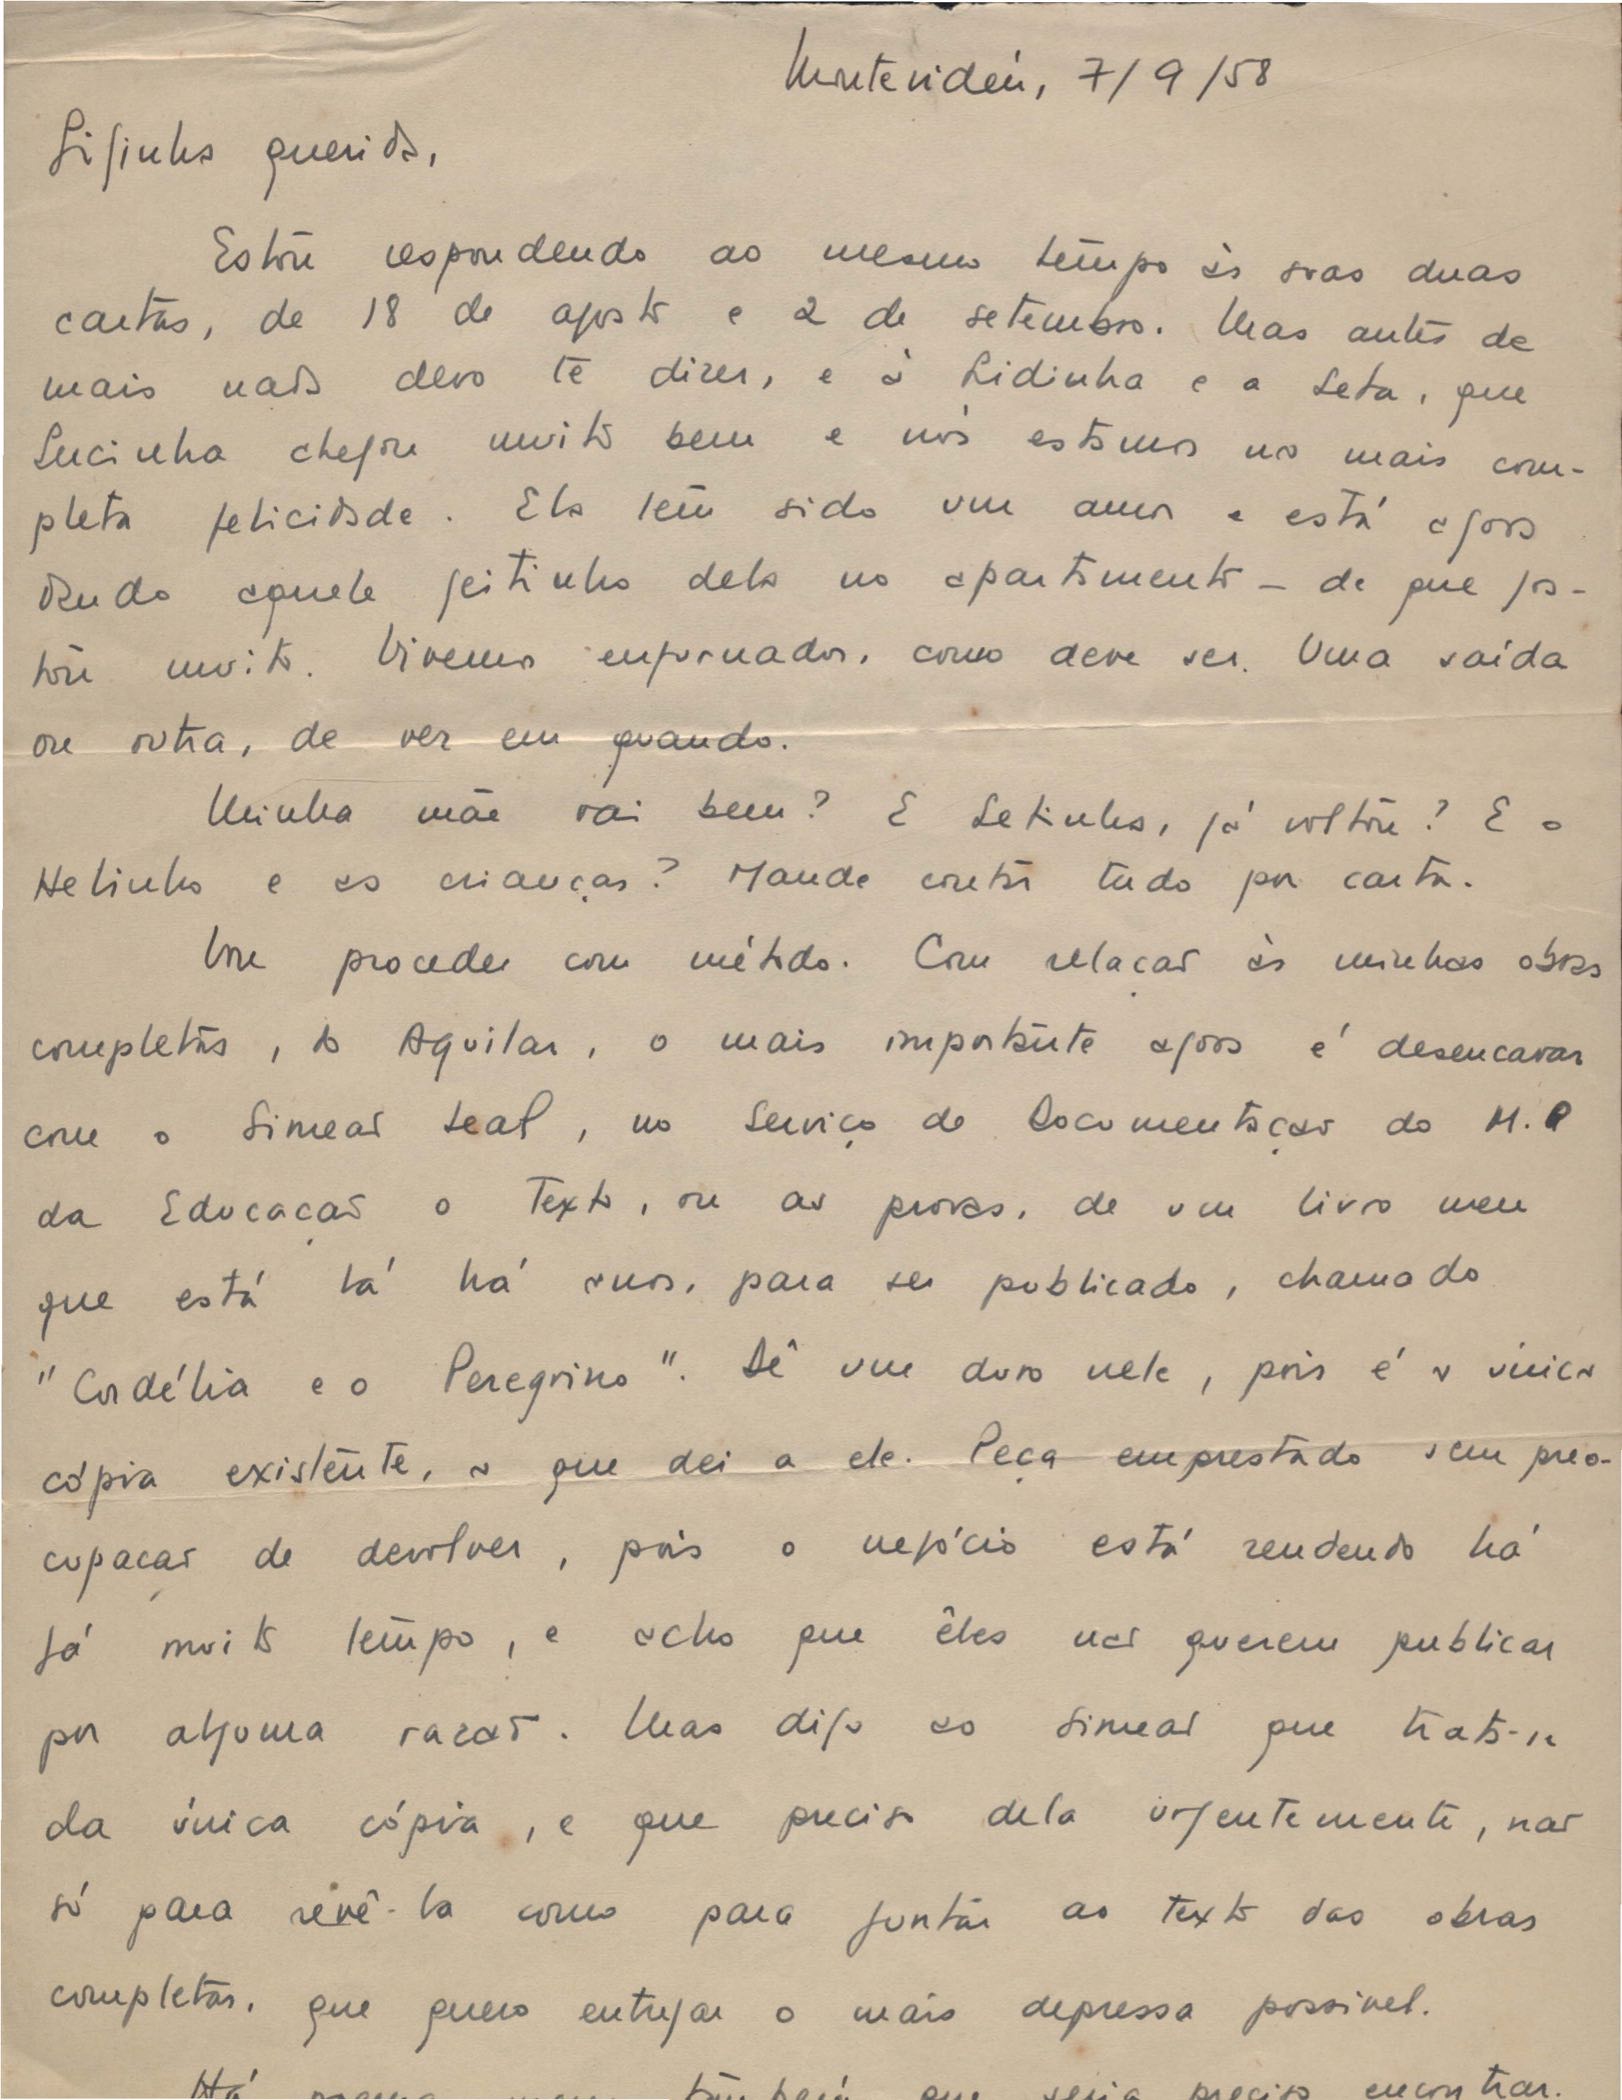 Montevidéu, 7/9/58
Giginha querida,
Estou respondendo ao mesmo tempo às suas duas
cartas, de 18 de agosto e 2 de setembro. Mas antes de
mais nada devo te dizer, e à Lidinha e a Leta, que
Lucinha chegou muito bem e nós estamos na mais com-
pleta felicidade. Ela tem sido um amor e está agora
dando aquele jeitinho dela no apartamento – de que gos-
tou muito. Vivemos enfurnados, como deve ser. Uma saída
ou outra, de vez em quando.
Minha mãe vai bem? E Letinha, já voltou? E o
Helinho e as crianças? Mande contar tudo por carta.
Vou proceder com método. Com relação às minhas obras
completas, da Aguilar, o mais importante agora é desencavar
com o Simeão Leal, no Serviço de Documentação do M.
da Educação o texto, ou as provas, de um livro meu
que está lá há anos, para ser publicado, chamado
"Cordélia e o Peregrino". Dê um duro nele, pois é a única
cópia existente, a que dei a ele. Peça emprestado sem preo-
cupação de devolver, pois o negócio está rendendo há
já muito tempo, e acho que êles não querem publicar
por alguma razão. Mas diga ao Simeão que trata-se
da única cópia, e que preciso dela urgentemente, não
só para revê-la como para juntar ao texto das obras
completas, que quero entregar o mais depressa possivel.
Há também que seria preciso encontrar.